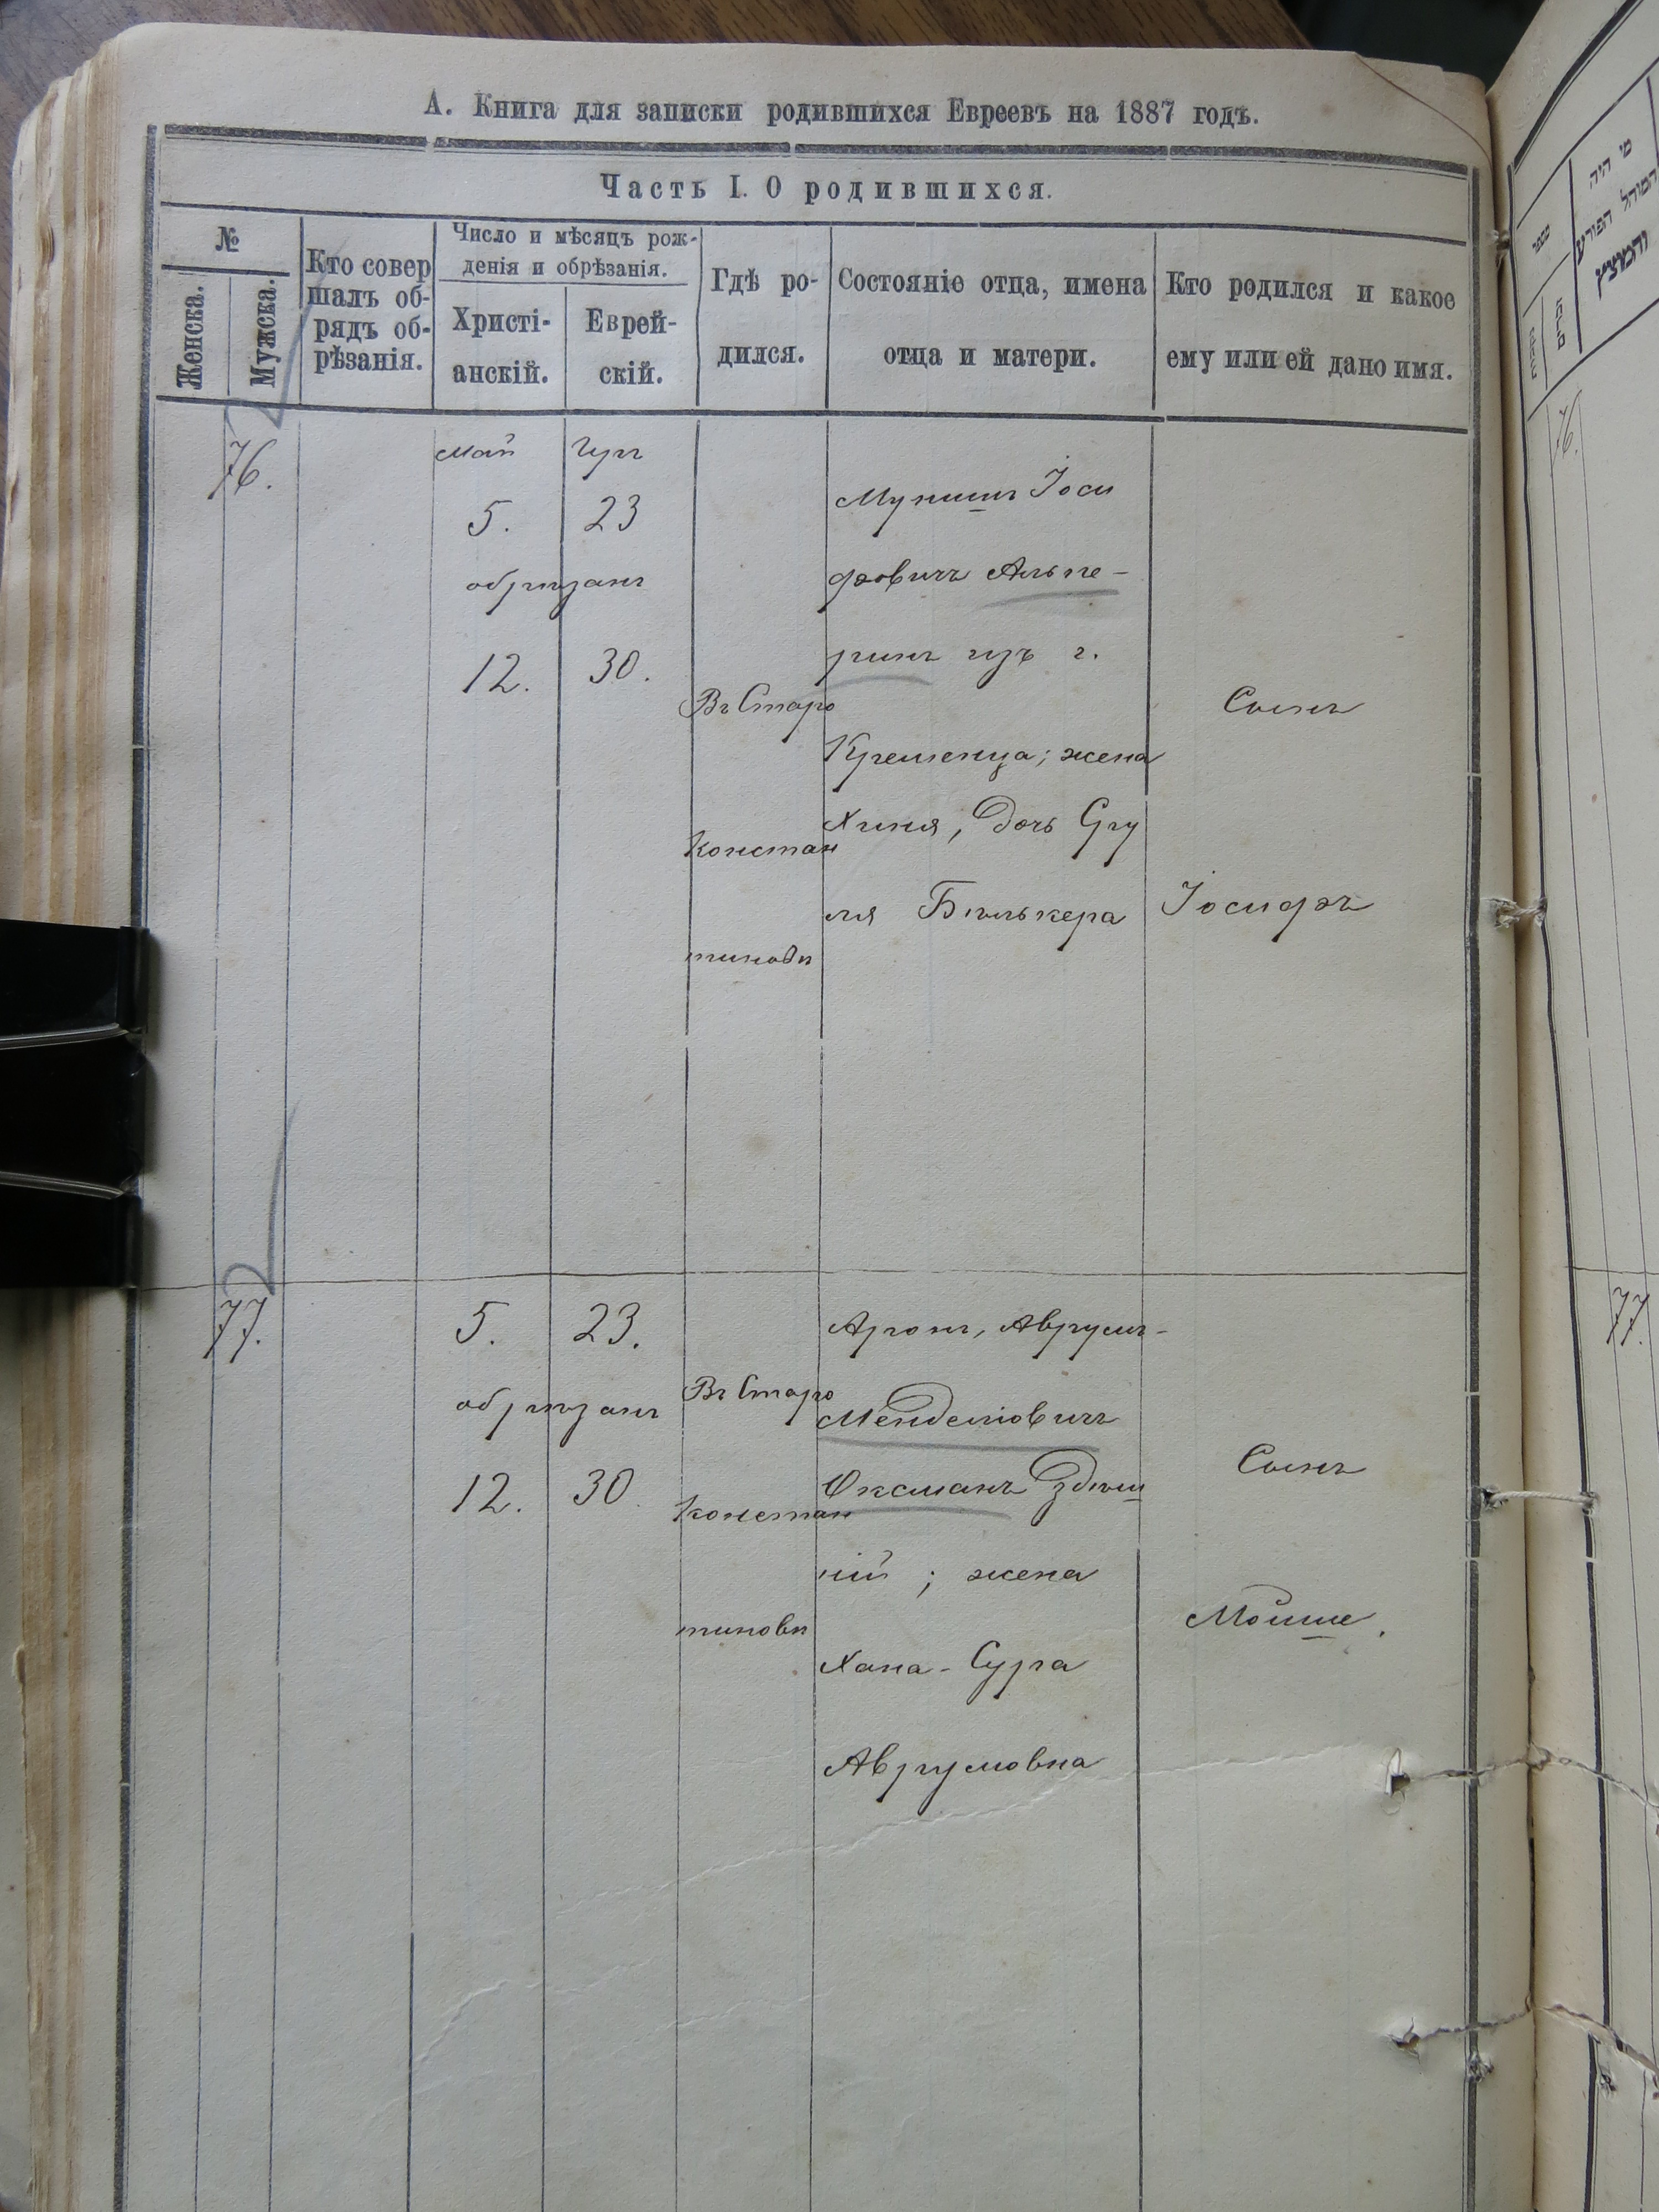 А. Книга для записки родившихся Евреевъ на 1887 годъ.
Часть I. О родившихся.
№
Женска.
Мужска.
Кто совер
шалъ об-
рядъ об-
рѣзанія.
Число и мѣсяцъ рож-
денія и обрѣзанія.
Христі-
анскій.
Еврей-
скій.
Гдѣ ро-
дился.
Состояніе отца, имена
отца и матери.
Кто родился и какое
ему или ей дано имя.
76.
май
5.
23
обрѣзанъ
12.
30.
Въ Старо
констан
тиновѣ
Іоси
фовичъ Альпе-
ринъ изъ г.
Кременца; жена
Хиня, дочь Сру
ля Бѣлькера
Сынъ
Іосифъ
77.
5.
23.
обрѣзанъ
12.
30
Въ Старо
констан
тиновѣ
Аронъ, Аврумъ-
Менделіовичъ
Оксманъ здѣш
ній; жена
Хана-Сура
Аврумовна
Сынъ
Мойше.
מי היה
המוהל הפורע
והמוצץ
76.
77.